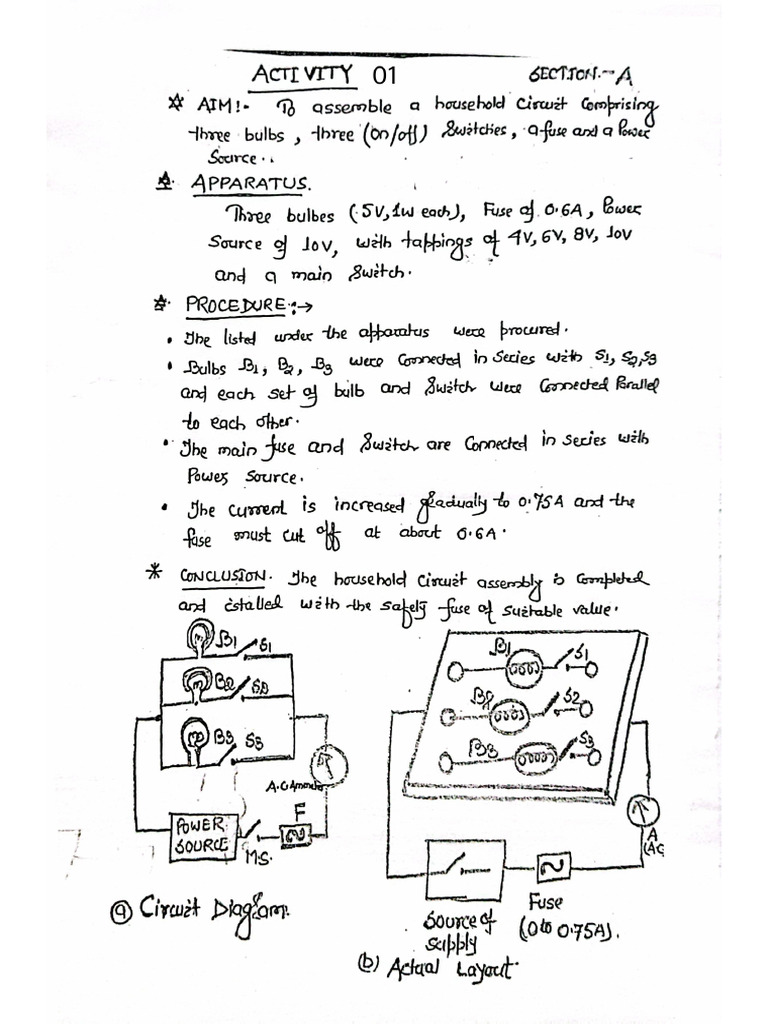 ACTIVITY 01 SECTION:-A
AIM!:- To assemble a household Circuit Comprising
three bulbs, three (on/off) Switches, a fuse and a Power
Source..
APPARATUS.
Three bulbes (.5V,1W each), Fuse of 0.6A, Power
Source of 10V, with tappings of 4V, 6V, 8V, 10V
and a main Switch.
PROCEDURE:→
• The listed under the apparatus were procured.
• Bulbs B1, B2, B3 were Connected in Series with S1, S2, S3
and each set of bulb and Switch were Connected Parallel
to each other.
• The main fuse and Switch are Connected in series with
Power Source.
• The current is increased gradually to 0.75A and the
fuse must cut off at about 0.6A.
* CONCLUSION. The household Circuit assembly is Completed
and istalled with the safely fuse of suitable value.
B1 S1
B2 S2
B3 S3
F
POWER
SOURCE
M.S.
(a) Circuit Diagram.
B1 S1
B2 S2
B3 S3
A
(AC
Source of
supply
Fuse
(0 to 0.75A).
(b) Actual Layout.